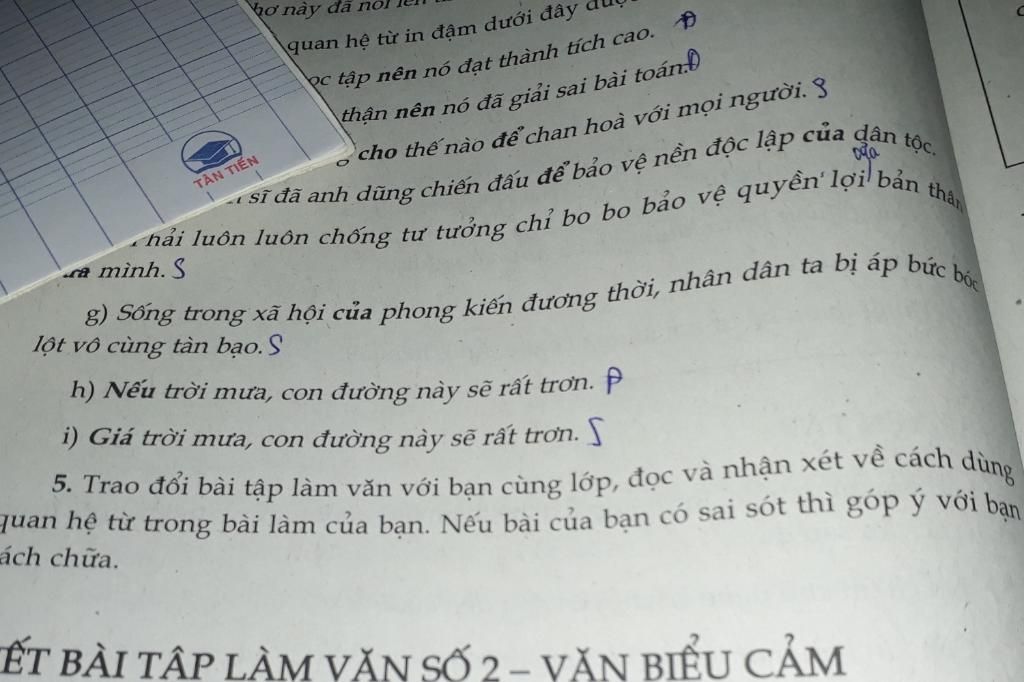 này đã nói
quan hệ từ in đậm dưới đây
tập nên nó đạt thành tích cao. Đ
thận nên nó đã giải sai bài toán. Đ
cho thế nào để chan hoà với mọi người. S
sĩ đã anh dũng chiến đấu để bảo vệ nền độc lập của dân tộc.
của
luôn luôn chống tư tưởng chỉ bo bo bảo vệ quyền lợi bản thân
mình. S
g) Sống trong xã hội của phong kiến đương thời, nhân dân ta bị áp bức bóc
lột vô cùng tàn bạo. S
h) Nếu trời mưa, con đường này sẽ rất trơn. Đ
i) Giá trời mưa, con đường này sẽ rất trơn. S
5. Trao đổi bài tập làm văn với bạn cùng lớp, đọc và nhận xét về cách dùng
quan hệ từ trong bài làm của bạn. Nếu bài của bạn có sai sót thì góp ý với bạn
chữa.
BÀI TẬP LÀM VĂN SỐ 2 – VĂN BIỂU CẢM
TÂN TIẾN